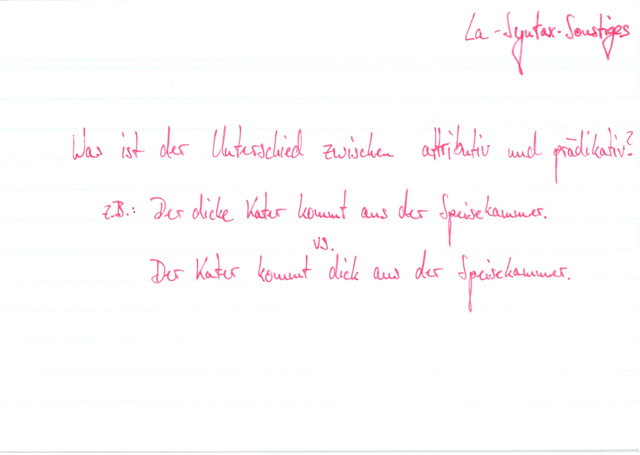 La-Syntax-Sonstiges
Was ist der Unterschied zwischen attributiv und prädikativ?
z.B.: Der dicke Kater kommt aus der Speisekammer.
vs.
Der Kater kommt dick aus der Speisekammer.